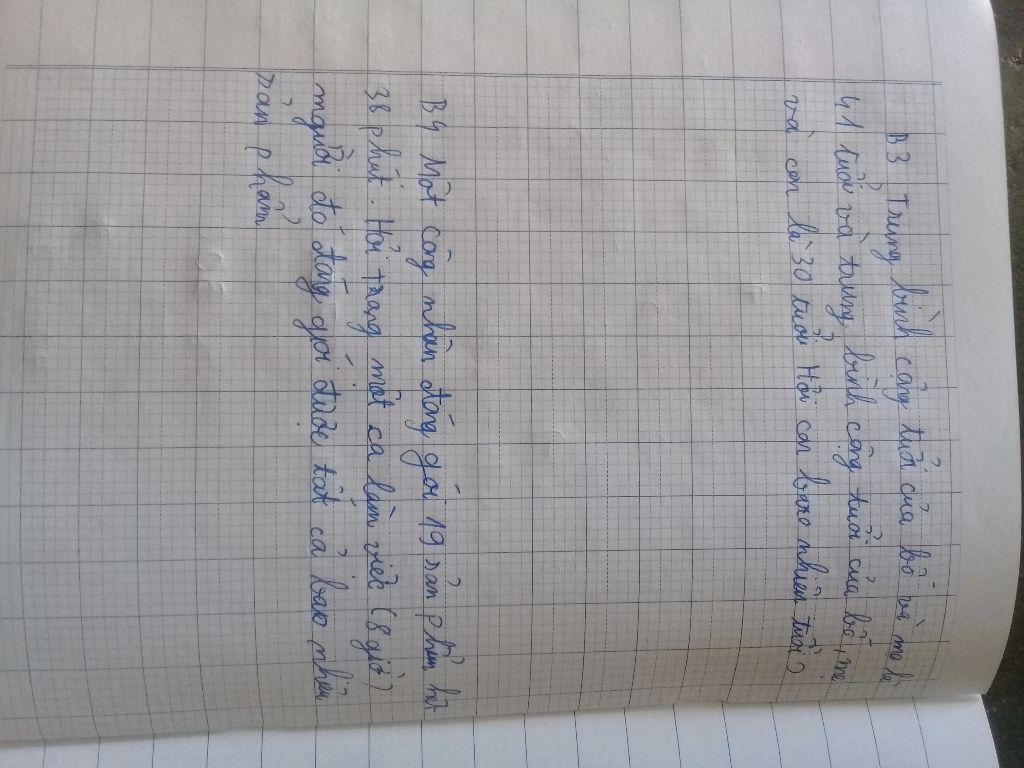 B3 Trung bình cộng tuổi của bố và mẹ là
41 tuổi và trung bình cộng tuổi của bố, mẹ
và con là 30 tuổi Hỏi con bao nhiêu tuổi?
B4 Một công nhân đóng gói 19 sản phẩm hết
38 phút. Hỏi trong một ca làm việc (8 giờ)
người đó đóng gói được tất cả bao nhiêu
sản phẩm